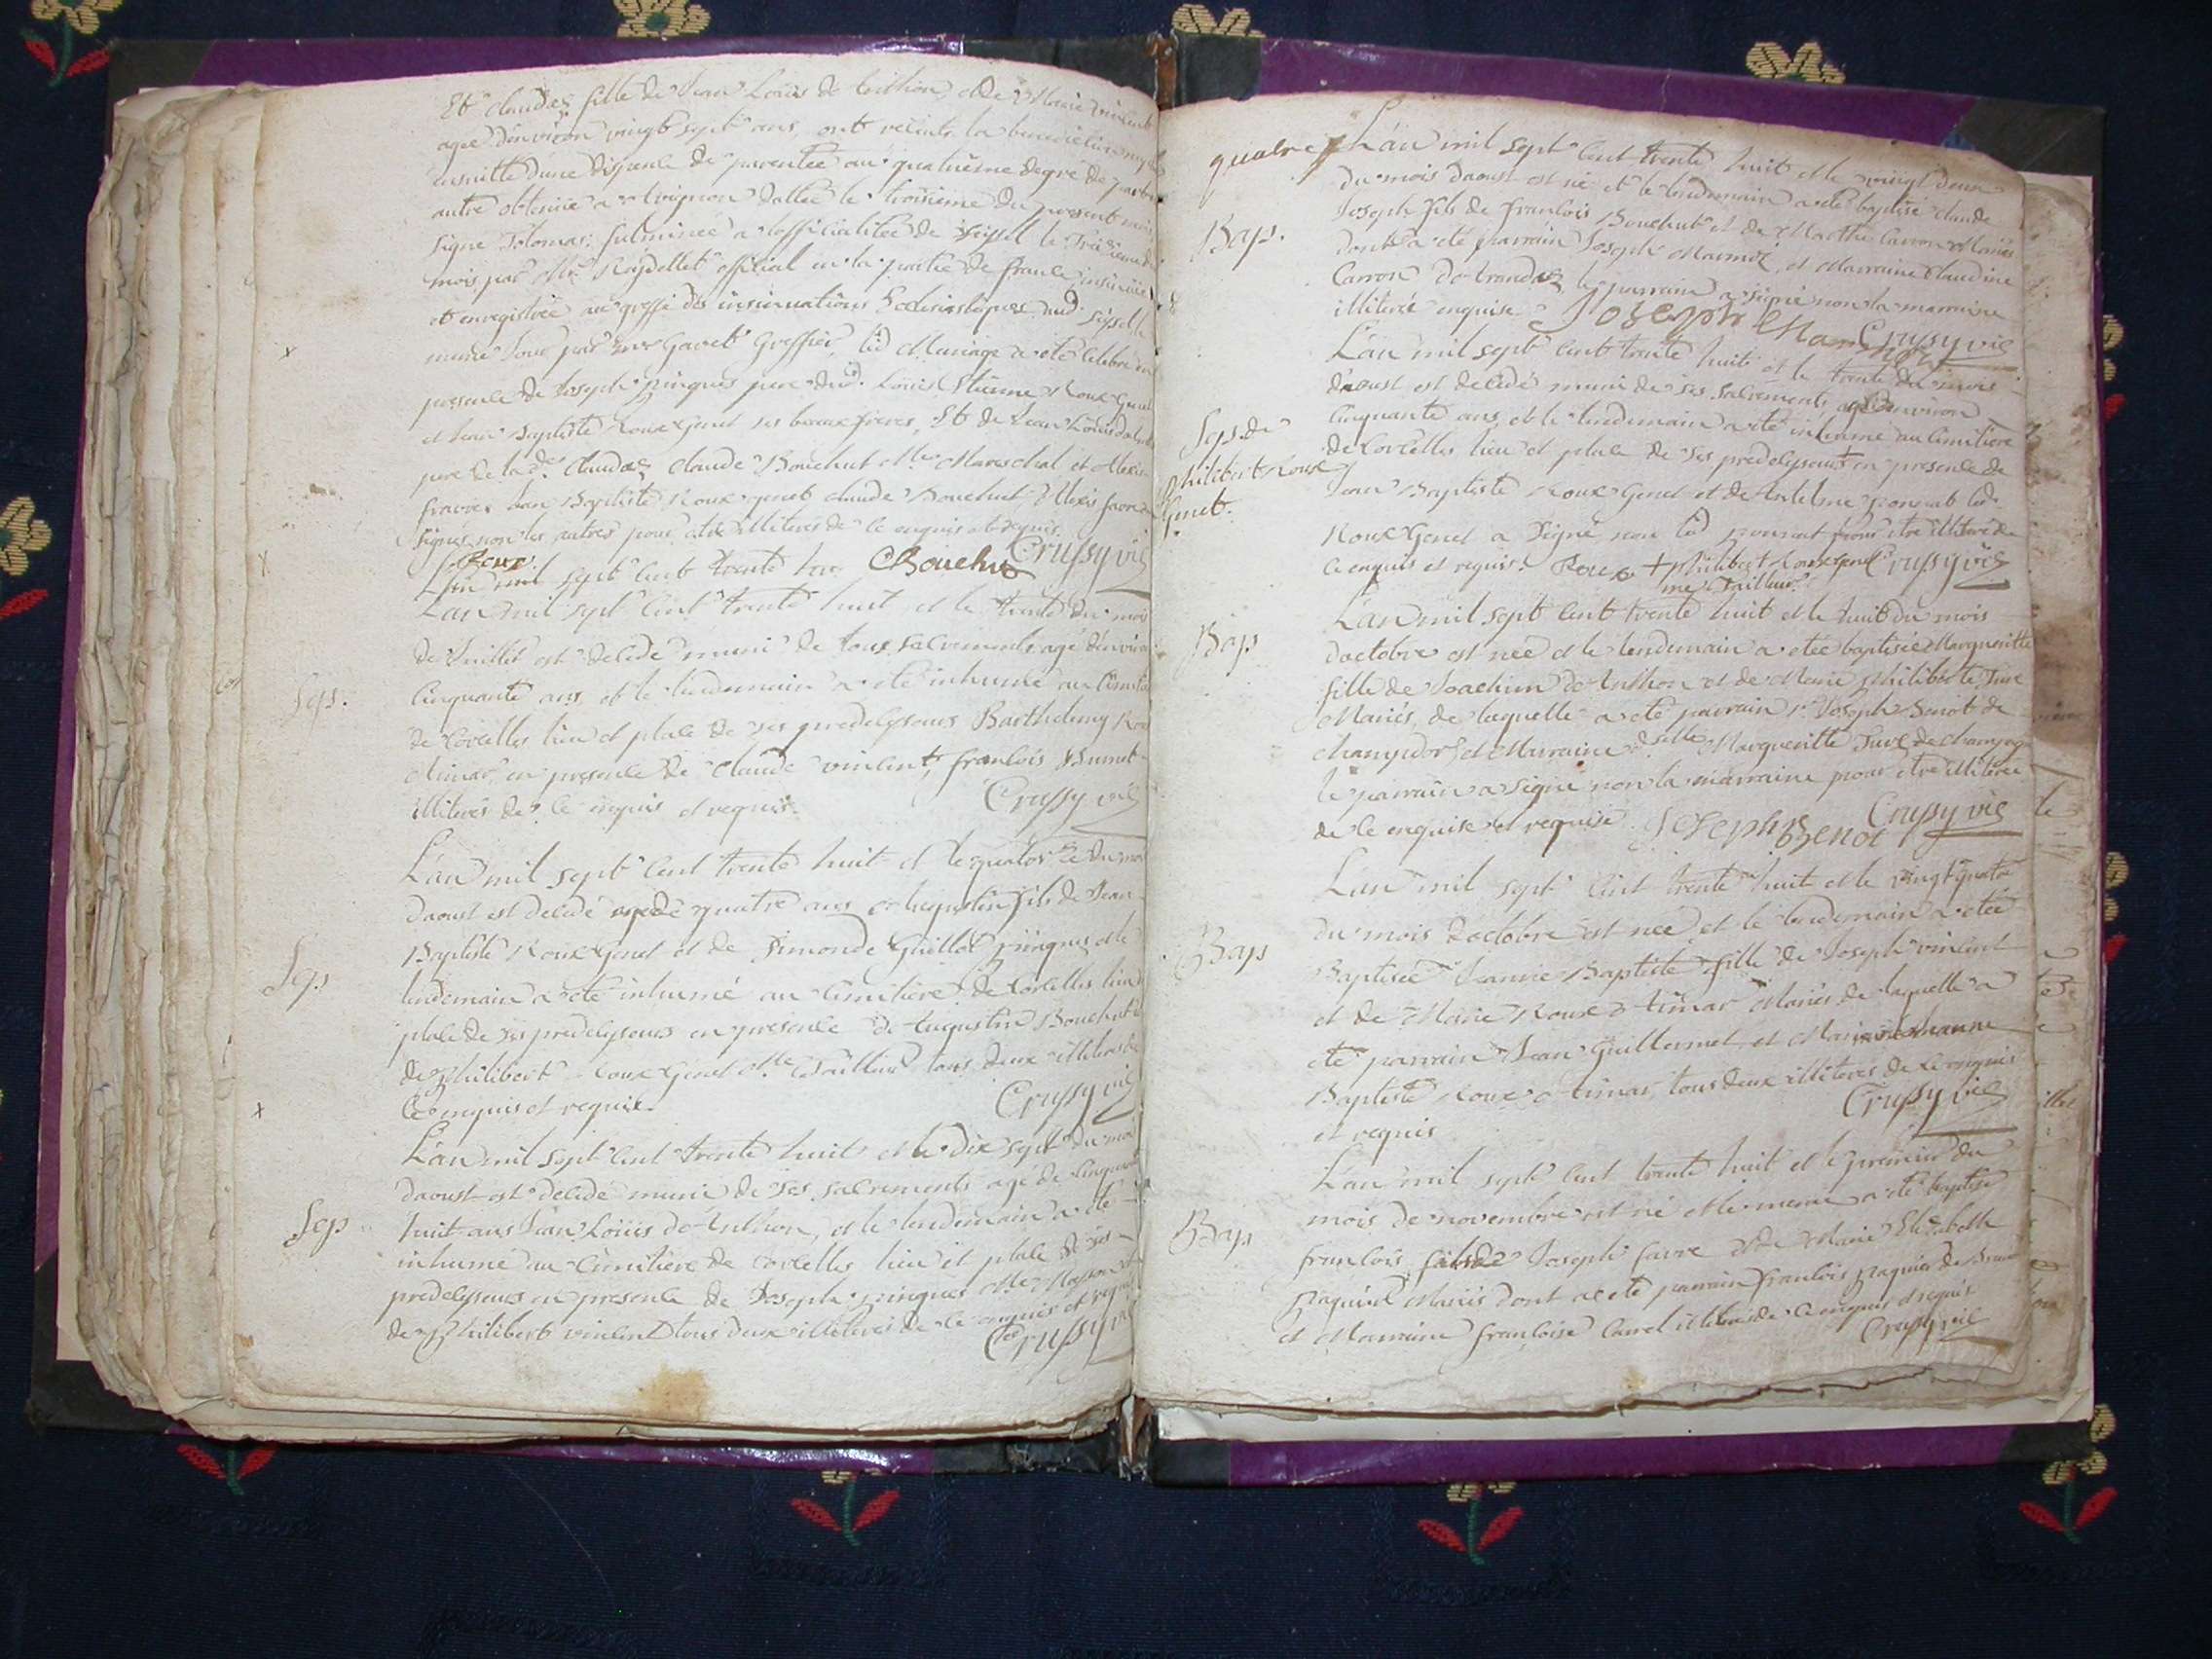 Et claudaz fille de Jean Louis de Luthon et de Marie vincent
agée denviron vingt sept ans, ont recüe la benediction
ensuitte dune dispense de parentée au quatrième degré de part et
autre obtenüe a Avignon dattée le troisieme du present mois
signé Tolomas, fulminée a lofficialitée de Seissel le
mois par Mre Roydellet official en la partie de france, insinuée
et enregistrée au greffe des insinuations Ecclesiastiques aud. Seyssel le
meme Jour par Gavet Greffier, led Mariage a été celebré en
presence de Joseph pingues pere dud. Louis Etienne Roux Genet
et Jean Baptiste Roux Genet ses beaux freres, Et de Jean Louis
pere de lad. Claudaz Claude Bouchut Mre Mareschal et Alexis
Jean Baptiste Roux genet claude Bouchut, Alexis favre
signés non les autres pour être illiterés de ce enquis et requis.
Roux CBouchu Crussy vic
L'an mil sept cent trente
L'an mil sept cent trente huit et le trente du mois
de Juillet est decedé muni de tous sacrements agé denviron
Sep. cinquante ans et le lendemain a eté inhumé au cimitiere
de Corcelles lieu et place de ses predecesseurs Barthelemy Roux
Aimar, en presence de Claude vincent, francois Brunet
illiterés de ce enquis et requis. Crussy vic
L'an mil sept cent trente huit et le quatorze du mois
daoust est decedé agé de quatre ans Augustin fils de Jean
Sep Baptiste Roux Genet et de Simonde Guillot pingues et le
lendemain a eté inhumé au cimitiere de Corcelles lieu
place de ses predecesseurs en presence de Augustin Bouchut
de philibert Roux Genet Mre Tailleur tous deux illiterés de
ce enquis et requis. Crussy vic
L'an mil sept cent trente huit et le dix sept du mois
daoust est decedé muni de ses sacrements agé de cinquante
Sep huit ans Jean Louis de Anthon, et le lendemain a eté
inhumé au cimitiere de Corcelles lieu et place de ses
predecesseurs en presence de Joseph pingues Mre Masson et
de Philibert vincent tous deux illiterés de ce enquis et requis
Crussy vic
quatre L'an mil sept cent trente huit et le vingt deux
du mois daoust est né et le lendemain a eté baptisé claude
Bap. Joseph fils de francois Bouchut et de Marthe Carron Mariés
dont a eté parrain Joseph Marmoz, et Marraine Claudine
Carron de brandaz, le parrain a signé non la marraine
illiterée enquise Joseph Marmoz Crussy vic
L'an mil sept cent trente huit et le trente du mois
daoust est decedé muni de ses sacrements agé denviron
Sep. de philibert Roux Genet. cinquante ans, et le lendemain a eté inhumé au cimitiere
de Corcelles lieu et place de ses predecesseurs + en presence de
Jean Baptiste Roux Genet et de Antelme poncrat led.
Roux Genet a signé non led poncrat pour être illiteré de
ce enquis et requis. Roux + philibert Roux Genet Crussy vic
mre Tailleur
L'an mil sept cent trente huit et le huit du mois
Bap doctobre est née et le lendemain a etée baptisée Margueritte
fille de Joachim de Anthon et de Marie philiberte Juve
Mariés, de laquelle a eté parrain sr. Joseph Benoit de
champdor et Marraine dselle Margueritte Juve de champag
le parrain a signé non la marraine pour être illiterée
de ce enquise et requise. Joseph Benoi Crussy vic
L'an mil sept cent trente huit et le vingt quatre
du mois doctobre est née et le lendemain a etée
Bap Baptisée Jeanne Baptiste fille de Joseph vincent
et de Marie Roux Aimar Mariés de laquelle a
eté parrain Jean Guillermet et Marraine Jeanne
Baptiste Roux Aimar tous deux illiterés de ce enquis
et requis Crussy vic
L'an mil sept cent trente huit et le premier du
mois de novembre est né et le meme a eté baptisé
Bap francois fils de Joseph favre et de Marie Elizabeth
Paquier Mariés dont a eté parrain francois paquier de
et Marraine francoise Carrel illiterés de ce enquis et requis
Crussy vic